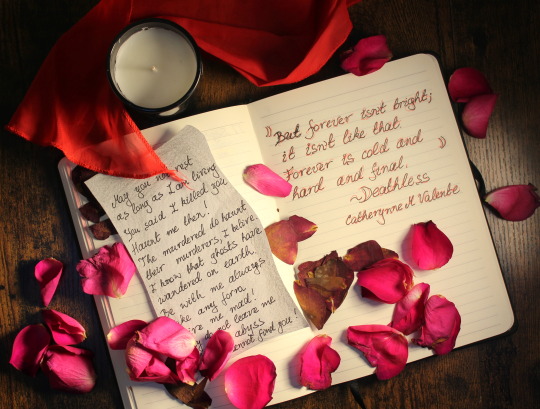 May you not rest
as long as I am living
You said I killed you
Haunt me then!
The murdered do haunt
their murderers, I believe
I know that ghosts have
wandered on earth
Be with me always
ke any form
ive me mad!
not leave me
abyss
cannot find you!
" But forever isn't bright;
it isn't like that.
Forever is cold and
hard and final. "
~Deathless
Catherynne M. Valente